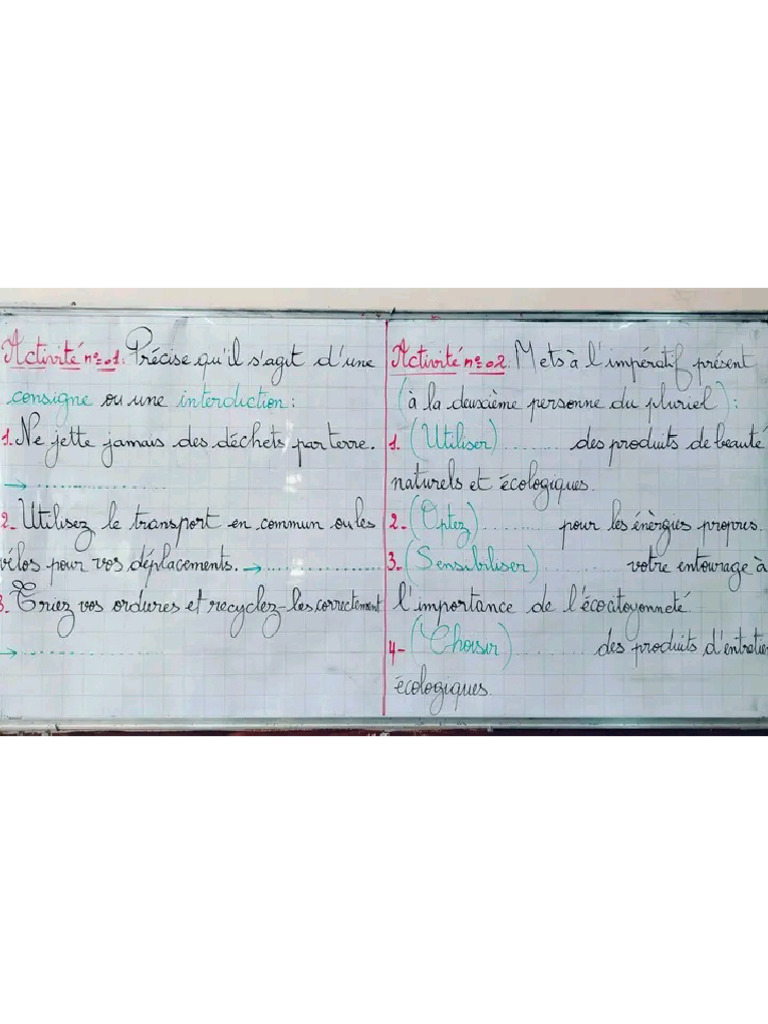 Activité n° 01: Précise qu'il s'agit d'une
consigne ou une interdiction:
1. Ne jette jamais des déchets par terre.
→ ..................
2- Utilisez le transport en commun ou les
vélos pour vos déplacements. → ..................
3. Triez vos ordures et recyclez-les correctement
→ ..................
Activité n° 02: Mets à l'impératif présent
(à la deuxième personne du pluriel):
1. (Utiliser) .......... des produits de beauté
naturels et écologiques.
2- (Optez) .......... pour les énèrgies propres.
3- (Sensibiliser) .......... votre entourage à
l'importance de l'écocitoyonneté.
4- (Choisir) .......... des produits d'entretien
écologiques.